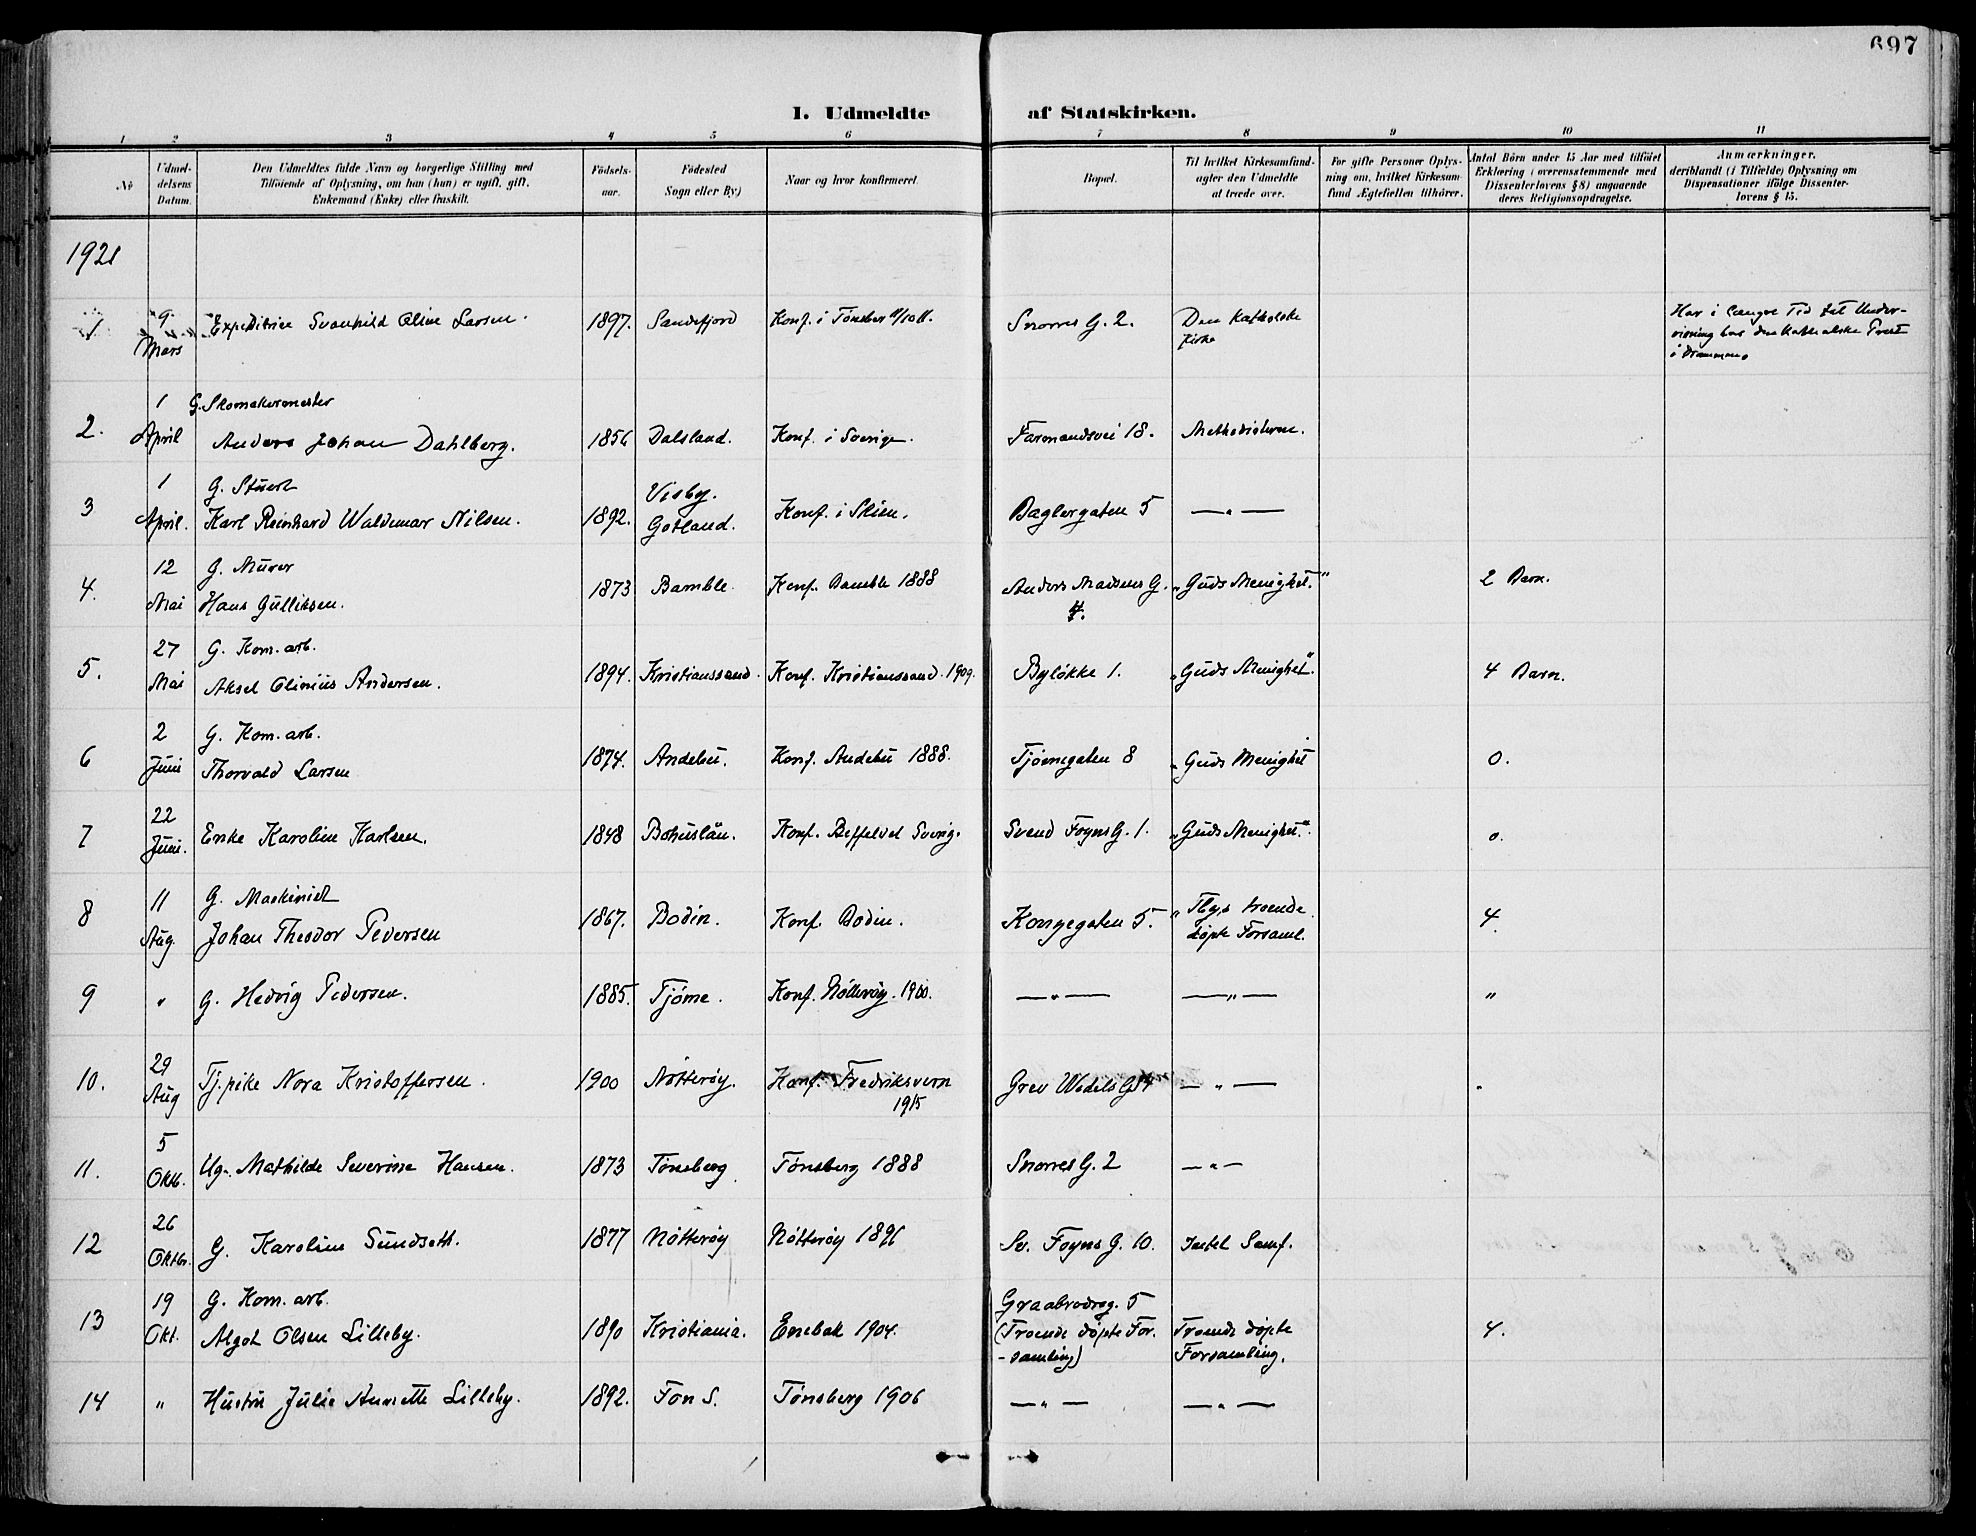 697
I. Udmeldte af Statskirken.
1 2 3 4 5 6 7 8 9 10 11
No
Udmel-
delsens
Datum.
Den Udmeldtes fulde Navn og borgerlige Stilling med
Tilføiende af Oplysning, om han (hun) er ugift, gift,
Enkemand (Enke) eller fraskilt.
Fødsels-
aar.
Fødested
Sogn eller By)
Naar og hvor konfirmeret.
Bopæl.
Til hvilket Kirkesamfund-
agter den Udmeldte
at træde over.
For gifte Personer Oplys-
ning om, hvilket Kirkesam-
fund Ægtefællen tilhører.
Antal Børn under 15 Aar med tilføiet
Erklæring i overensstemmende med
Dissenterlovens § 8) angaaende
deres Religionsopdragelse.
Anmærkninger.
deriblandt (i Tilfælde) Oplysning om
Dispensationer ifølge Dissenter-
lovens § 15.
1921
1 9 Mars Expeditrice Svanhild Oline Larsen. 1897. Sandefjord Konf. i Tønsberg /10 11. Snorres G. 2. Den katholske
Kirke
Har i længre Tid fåt Under-
visning hos den katholske Prest
i Drammen.
2. 1 April G. Skomakermester
Anders Johan Dahlberg. 1856 Dalsland. Konf. i Sverige. Farmandsvei 18. Methodisterne.
3 1 April. G. Stuert
Karl Reinhard Waldemar Nilsen. 1892. Visby.
Gotland. Konf. i Skien. Baglergaten 5 — " —
4. 12 Mai G. Murer
Hans Gulliksen. 1873 Bamble. Konf. Bamble 1888 Anders Madsens G.
4. "Guds Menighet." 2 Barn.
5. 27 Mai G. Kom. arb.
Aksel Olinius Andersen. 1894. Kristianssand. Konf. Kristianssand. 1909. Byløkke 1. "Guds Menighet". 4 Barn.
6 2 Juni G. Kom. arb.
Thorvald Larsen 1874. Andebu. Konf. Andebu 1888. Tjømegaten 8 "Guds Menighet 0.
7 22 Juni. Enke Karoline Karlsen. 1848 Bohuslän. Konf. Sverig. Svend Foyns G. 1. "Guds Menighet." 0.
8 11 Aug. G. Maskinist
Johan Theodor Pedersen 1867. Bodin. Konf. Bodin. Kongegaten 5. troende
døpte Forsaml. 4.
9 " G. Hedvig Pedersen. 1885. Tjøme. Konf. Nøtterøy. 1900. — " — — " — "
10. 29 Aug Tj. pike Nora Kristoffersen. 1900 Nøtterøy. Konf. Fredriksvern
1915 Grev Wedels G — " —
11. 5 Oktb. Ug. Mathilde Severine Hansen. 1873 Tønsberg Tønsberg 1888 Snorres G. 2 — " —
12 26 Oktbr. G. Karoline Sundseth. 1877 Nøtterøy Nøtterøy 1891 Sv. Foyns G. 10. Intet Samf.
13 19 Okt. G. Kom. arb.
Algot Olsen Lilleby. 1890 Kristiania. Enebak 1904. Graabrødreg. 5
(Troende døpte For-
-samling) Troende døpte
Forsamling. 4.
14 " Hustru Julie Annette Lilleby. 1892. Fon S. Tønsberg 1906 — " — — " —